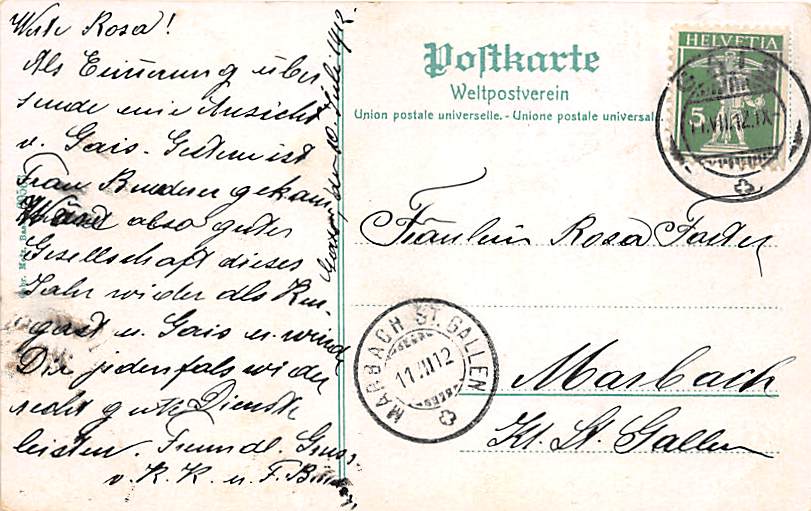 Werte Rosa!
Als Erinnerung über
sende eine Ansicht
v. Gais. Gestern ist
Frau Binderer gekam
also guter
Gesellschaft dieses
Jahr wieder als Kur-
gast u. Gais u. wird
Dir jedenfals wieder
recht gute Dienste
leisten. Freundl. Gruss
v. K. K. u. F.
Gais, den 10. Juli 1912.
Postkarte
Weltpostverein
Union postale universelle. - Unione postale universal
HELVETIA
5
11.VII.12.IX-
Fräulein Rosa
Marbach
Kt. St. Gallen
MARBACH ST. GALLEN
11.VII.12